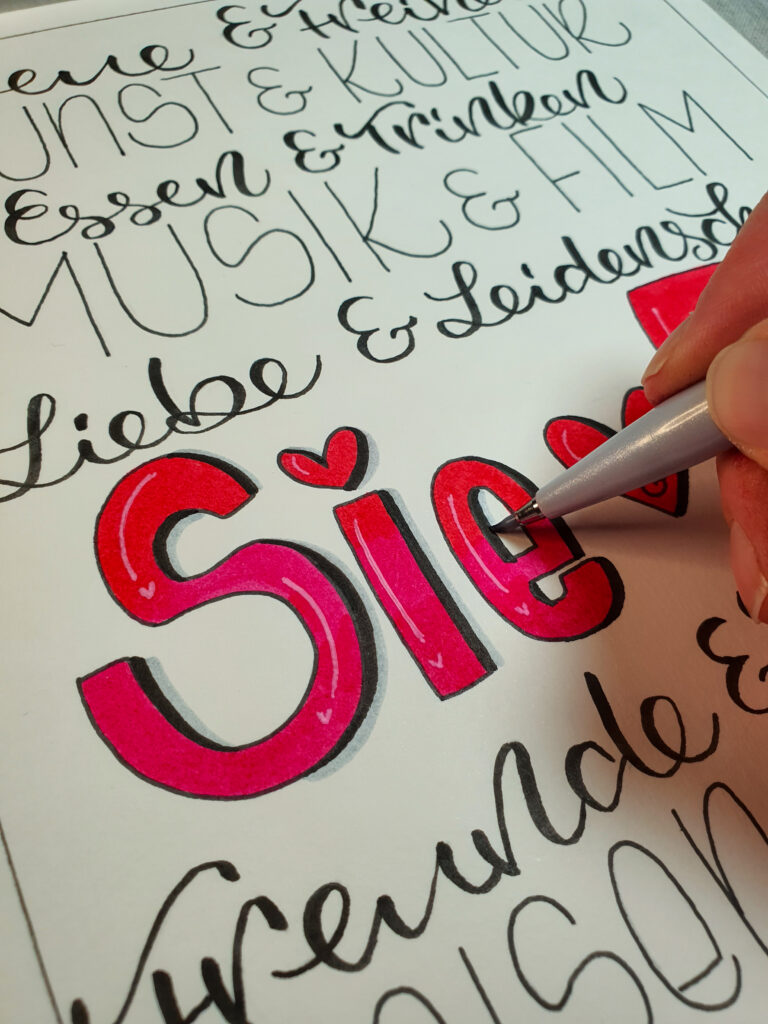 eue & Freihe
UNST & KULTUR
Essen & Trinken
MUSIK & FILM
Liebe & Leidensch
Sie
Freunde &
ISEN